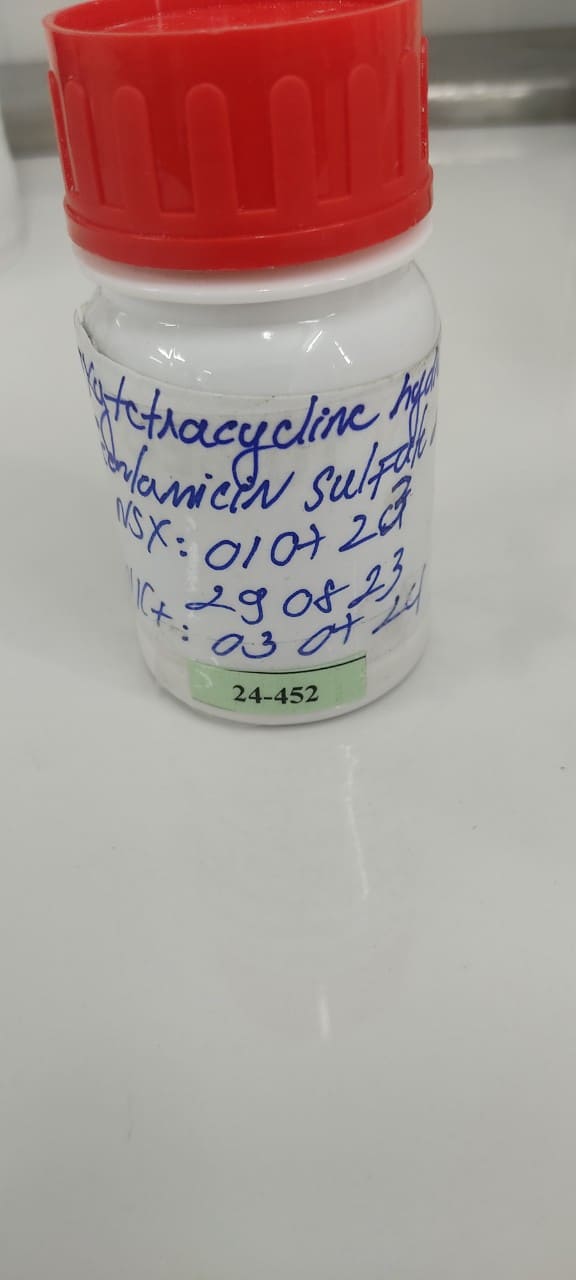 xytetracycline hyd
entamicin sulfate
NSX: 010+ 20
29 08 23
: 03 0+ 24
24-452